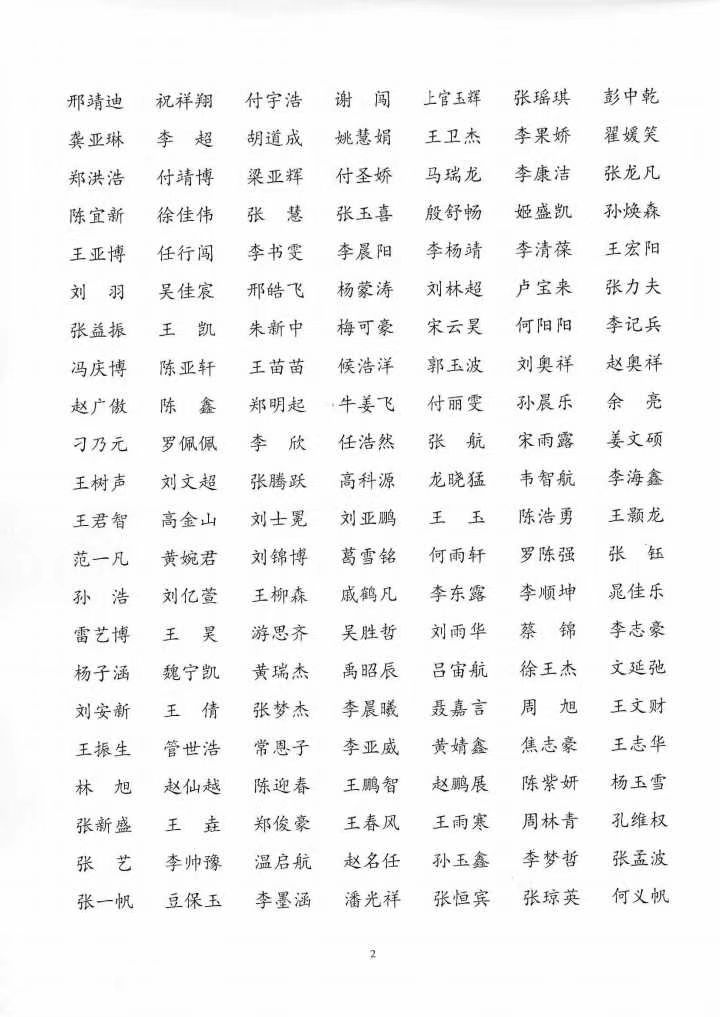 邢靖迪 祝祥翔 付宇浩 谢 闯 上官玉辉 张瑶琪 彭中乾
龚亚琳 李 超 胡道成 姚慧娟 王卫杰 李果娇 翟媛笑
郑洪浩 付靖博 梁亚辉 付圣娇 马瑞龙 李康洁 张龙凡
陈宜新 徐佳伟 张 慧 张玉喜 殷舒畅 姬盛凯 孙焕森
王亚博 任行闯 李书雯 李晨阳 李杨靖 李清葆 王宏阳
刘 羽 吴佳宸 邢皓飞 杨蒙涛 刘林超 卢宝来 张力夫
张益振 王 凯 朱新中 梅可豪 宋云昊 何阳阳 李记兵
冯庆博 陈亚轩 王苗苗 候浩洋 郭玉波 刘奥祥 赵奥祥
赵广傲 陈 鑫 郑明起 牛姜飞 付丽雯 孙晨乐 余 亮
刁乃元 罗佩佩 李 欣 任浩然 张 航 宋雨露 姜文硕
王树声 刘文超 张腾跃 高科源 龙晓猛 韦智航 李海鑫
王君智 高金山 刘士冕 刘亚鹏 王 玉 陈浩勇 王颢龙
范一凡 黄婉君 刘锦博 葛雪铭 何雨轩 罗陈强 张 钰
孙 浩 刘亿萱 王柳森 戚鹤凡 李东露 李顺坤 晁佳乐
雷艺博 王 昊 游思齐 吴胜哲 刘雨华 蔡 锦 李志豪
杨子涵 魏宁凯 黄瑞杰 禹昭辰 吕宙航 徐王杰 文延弛
刘安新 王 倩 张梦杰 李晨曦 聂嘉言 周 旭 王文财
王振生 管世浩 常恩子 李亚威 黄婧鑫 焦志豪 王志华
林 旭 赵仙越 陈迎春 王鹏智 赵鹏展 陈紫妍 杨玉雪
张新盛 王 垚 郑俊豪 王春风 王雨寒 周林青 孔维权
张 艺 李帅豫 温启航 赵名任 孙玉鑫 李梦哲 张孟波
张一帆 豆保玉 李墨涵 潘光祥 张恒宾 张琼英 何义帆
2